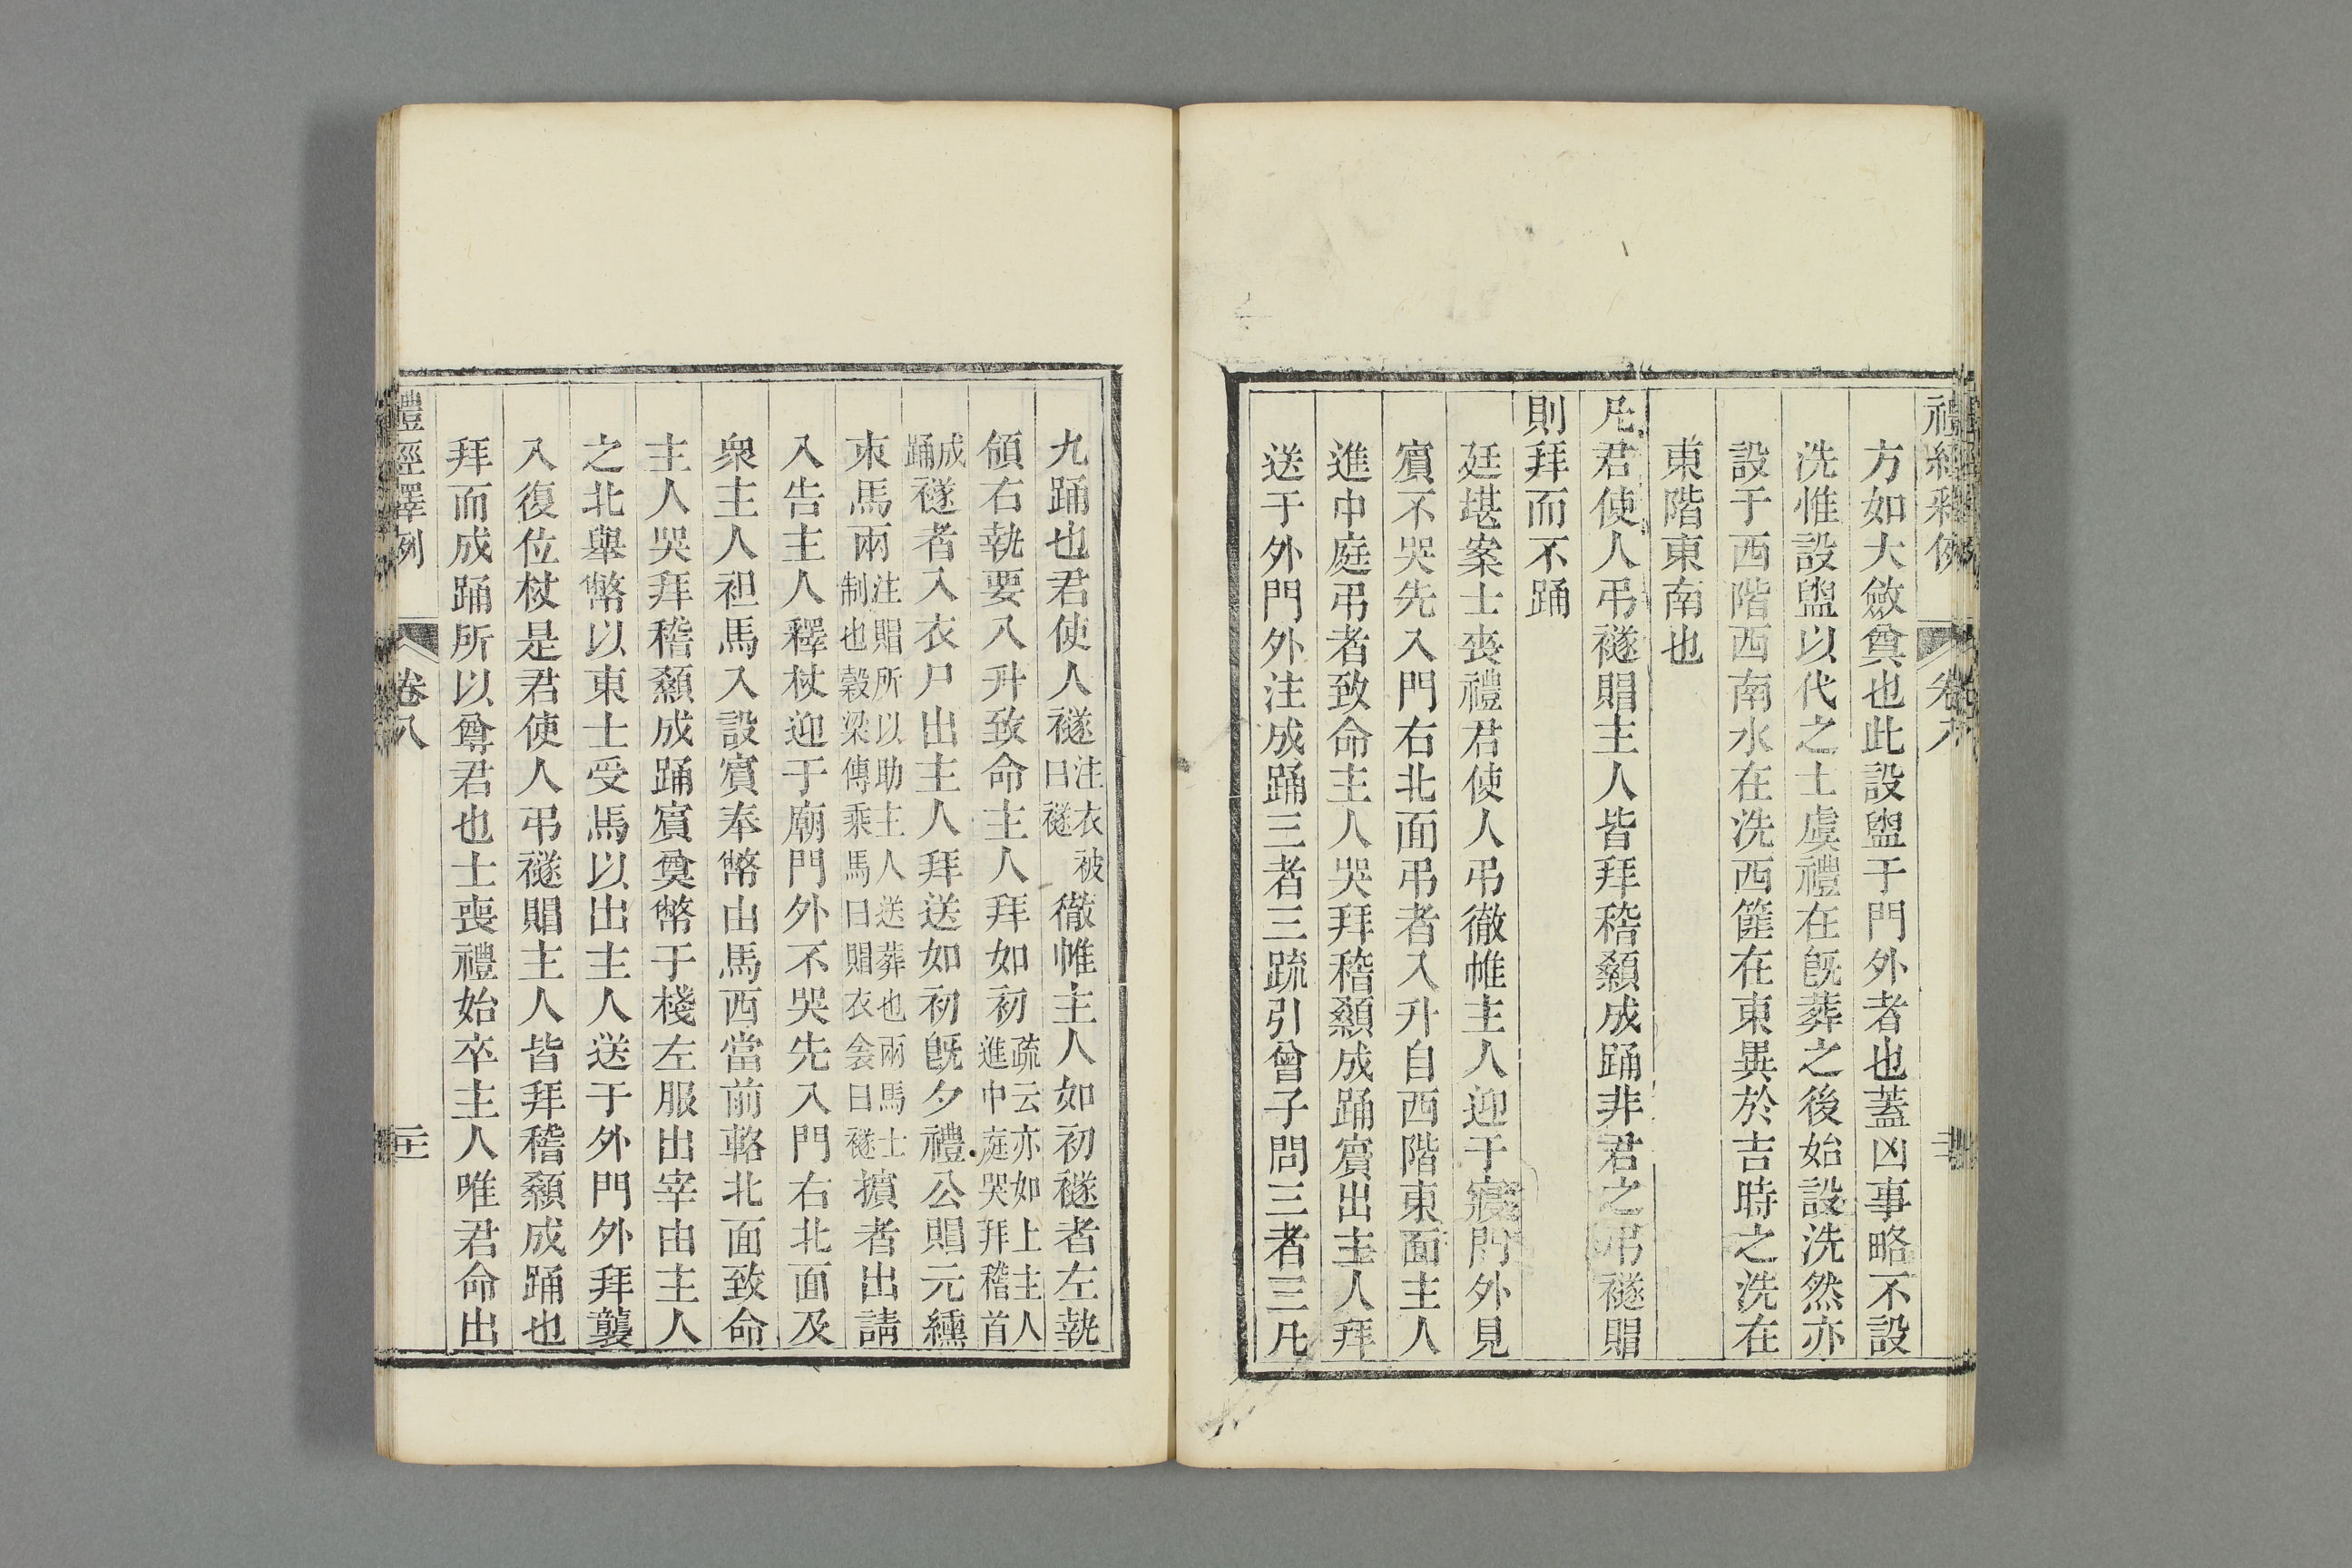 禮經釋例 卷八
方如大斂奠也此設盥于門外者也蓋凶事略不設
洗惟設盥以代之士虞禮在旣葬之後始設洗然亦
設于西階西南水在洗西篚在東異於吉時之洗在
東階東南也
凡君使人弔襚賵主人皆拜稽顙成踊非君之弔襚賵
則拜而不踊
廷堪案士喪禮君使人弔徹帷主人迎于寢門外見
賓不哭先入門右北面弔者入升自西階東面主人
進中庭弔者致命主人哭拜稽顙成踊賓出主人拜
送于外門外注成踊三者三疏引曾子問三者三凡
九踊也君使人襚注衣被曰襚徹帷主人如初襚者左執
領右執要入升致命主人拜如初疏云亦如上主人進中庭哭拜稽首
成踊襚者入衣尸出主人拜送如初旣夕禮公賵元纁
束馬兩注賵所以助主人送葬也兩馬士制也穀梁傳乘馬曰賵衣衾曰襚擯者出請
入告主人釋杖迎于廟門外不哭先入門右北面及
衆主人袒馬入設賓奉幣由馬西當前輅北面致命
主人哭拜稽顙成踊賓奠幣于棧左服出宰由主人
之北舉幣以東士受馬以出主人送于外門外拜襲
入復位杖是君使人弔襚賵主人皆拜稽顙成踊也
拜而成踊所以尊君也士喪禮始卒主人唯君命出
禮經釋例 卷八 二十一